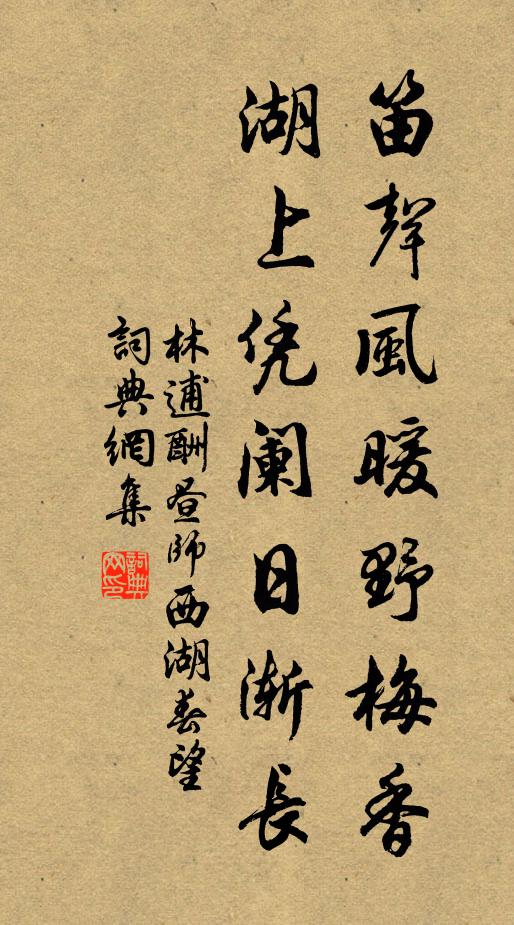 笛聲風暖野梅香
湖上凭阑日漸長
林逋酬晝師西湖春望
詞典網集
詞典网印